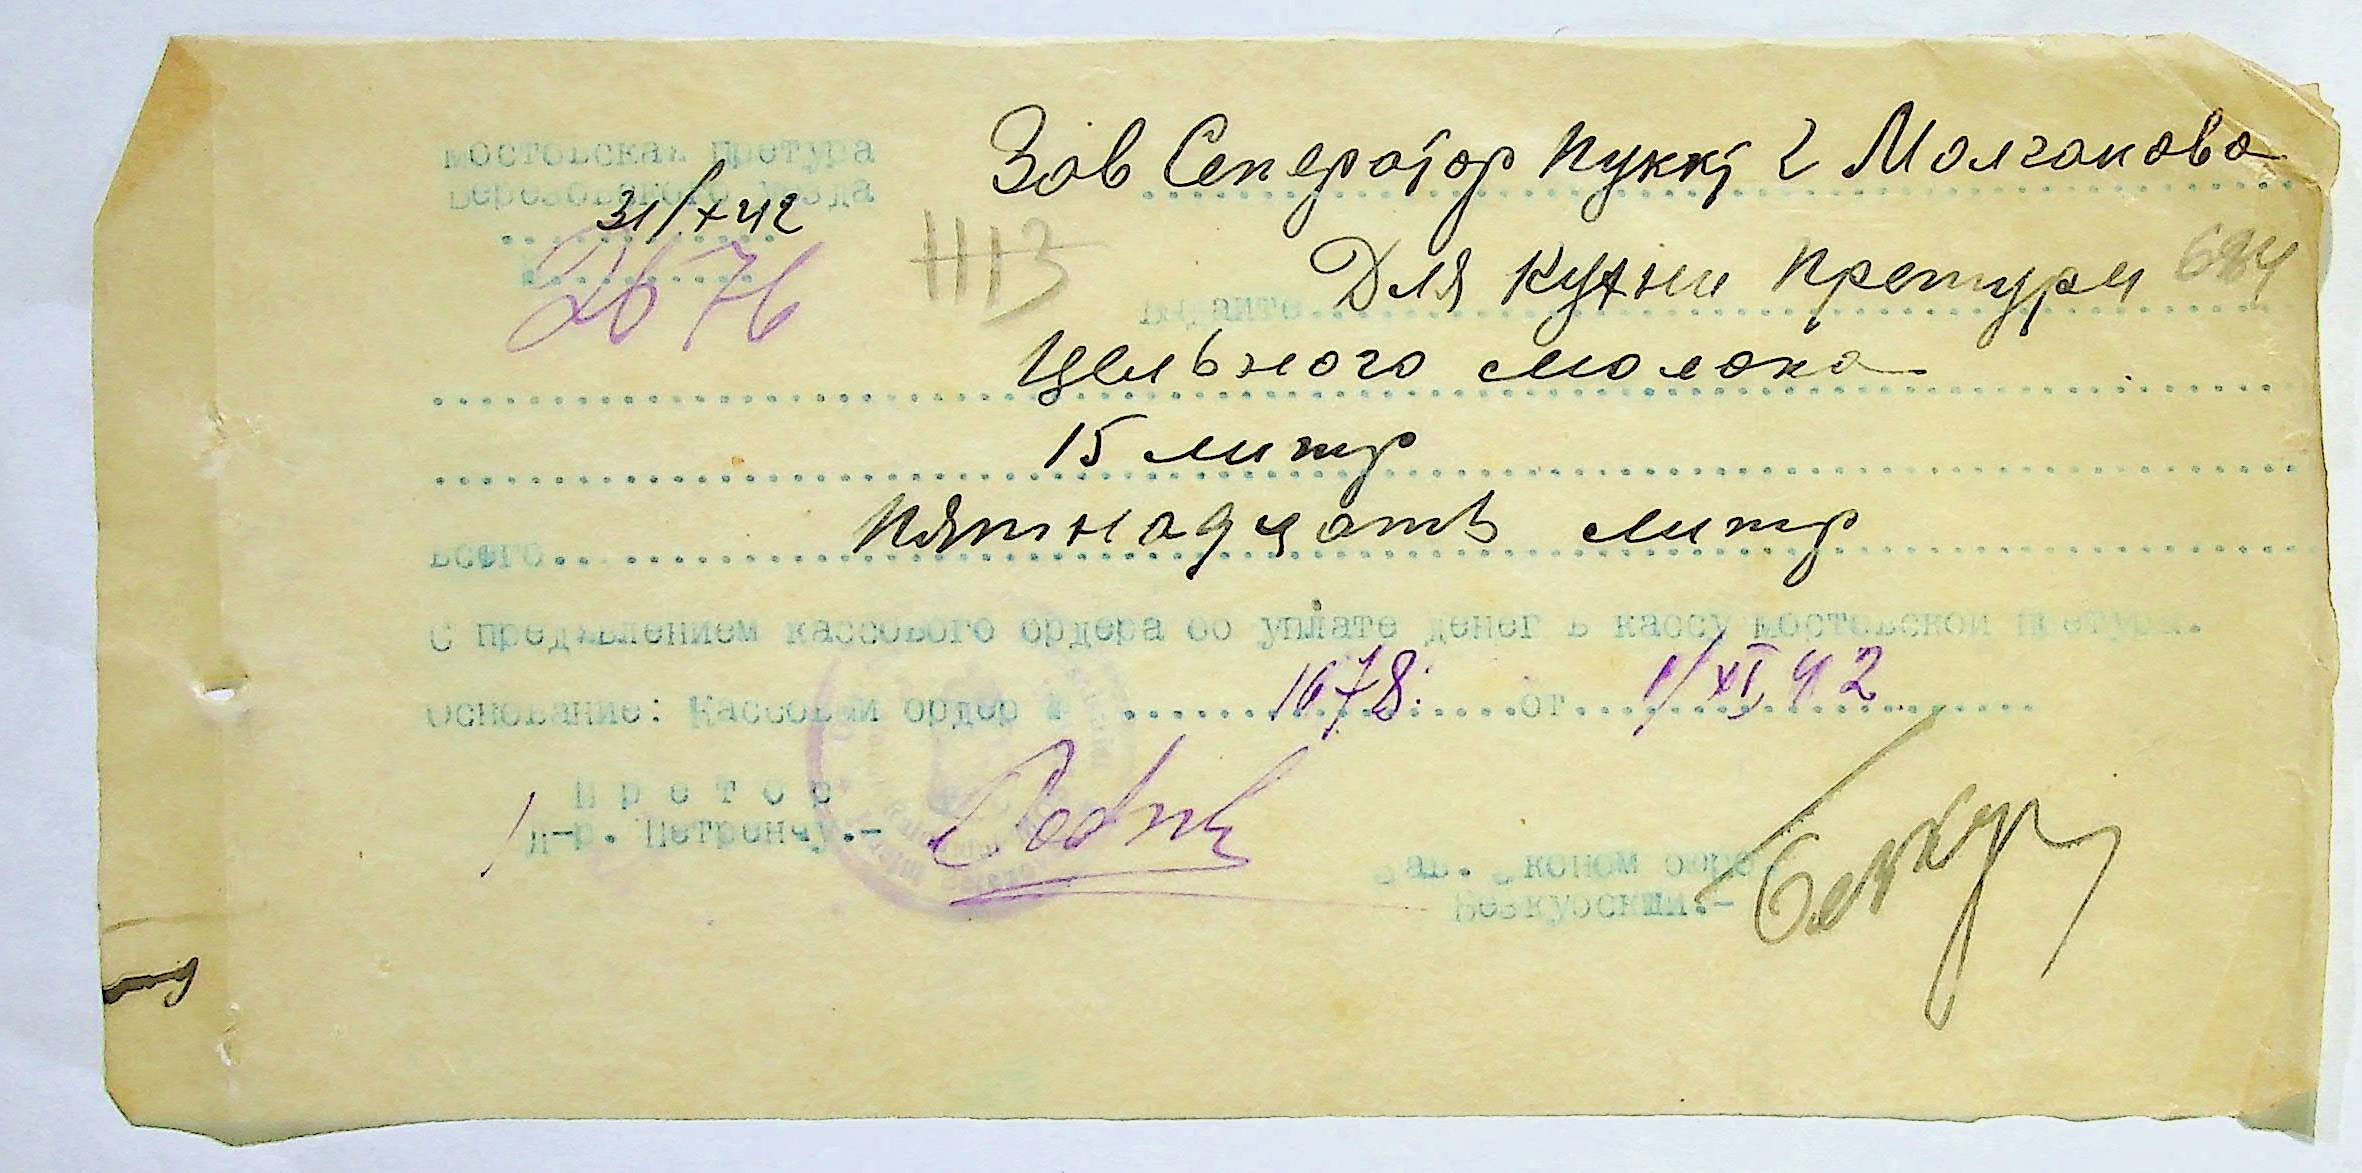 мостовская претура
березовского уезда
31/X 42
2676
1113
Зав Сеператор пункт 2 Молчанова
Для кухни претури 684
Цельного молока
15 литр
всего... Пятнадцать литр
С предявлением кассового ордера об уплате денег в кассу мостовской претуры.
Основание: Кассовый ордер № 1678. от 1/XI 42
Претор
д-р. Петренчу.-
Зав. Эконом бюро
Безкуоский.-